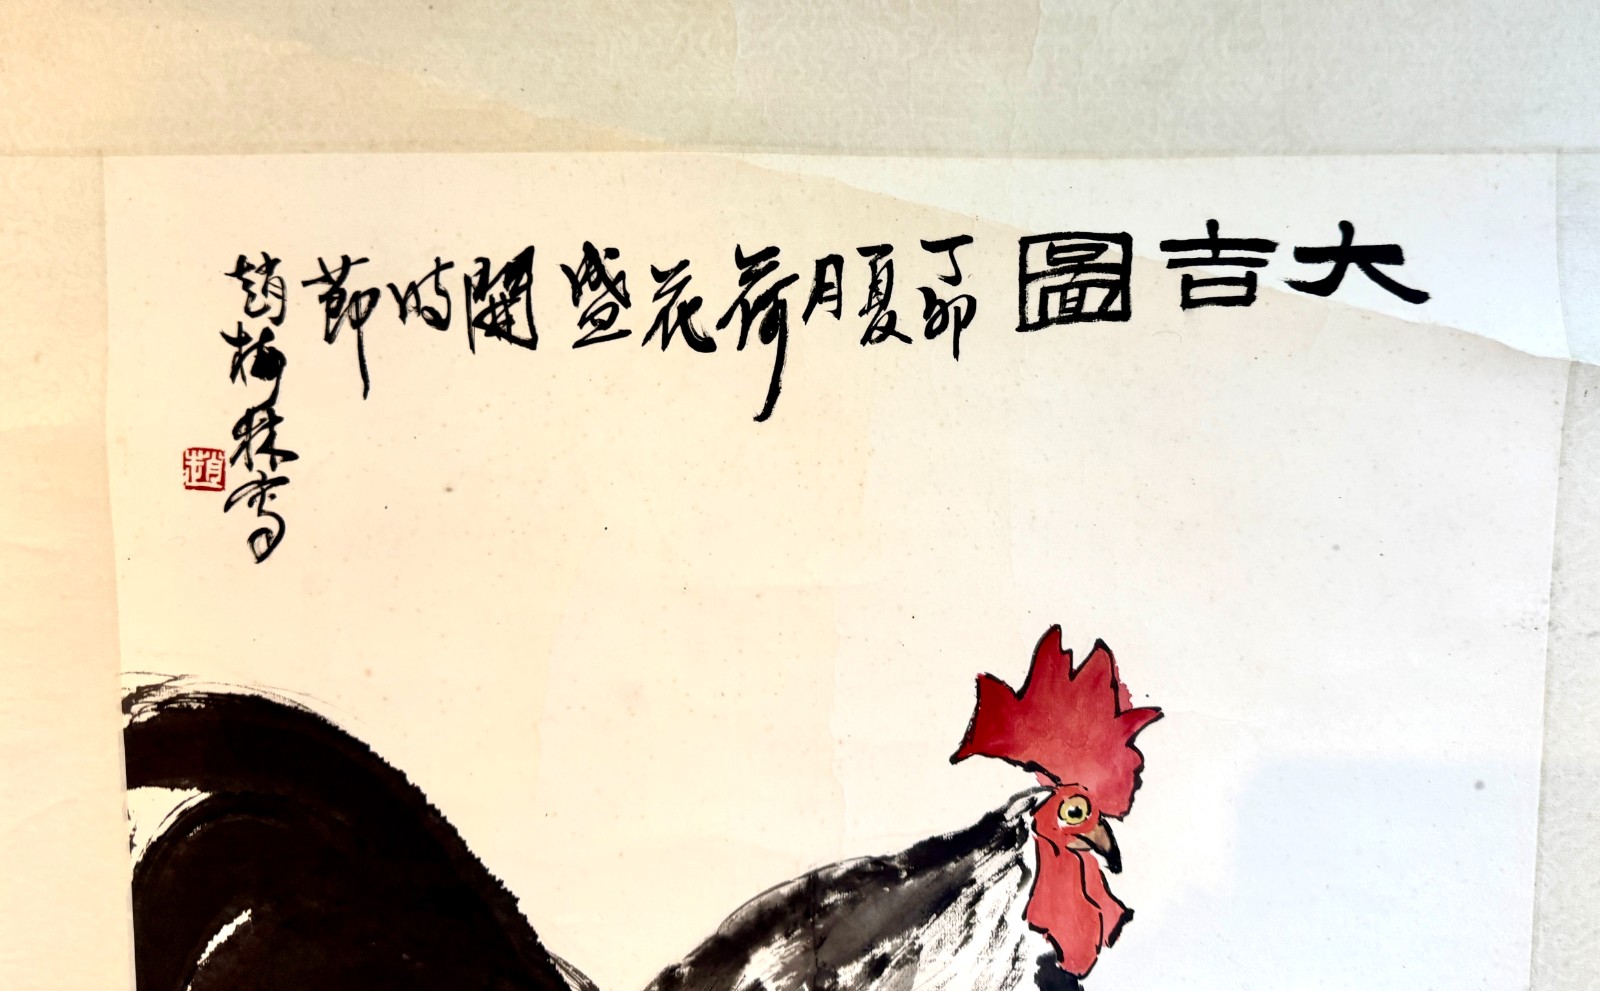 大吉圖
丁卯夏月荷花盛開時節
趙梅林寫
趙